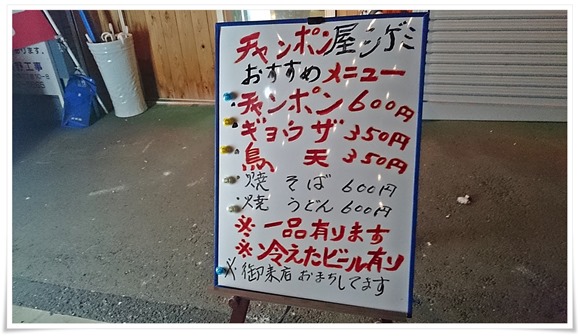 チャンポン屋シゲミ
おすすめメニュー
チャンポン 600円
ギョウザ 350円
鳥天 350円
焼そば 600円
焼うどん 600円
※一品有ります
※冷えたビール有り
※御来店おまちしてます